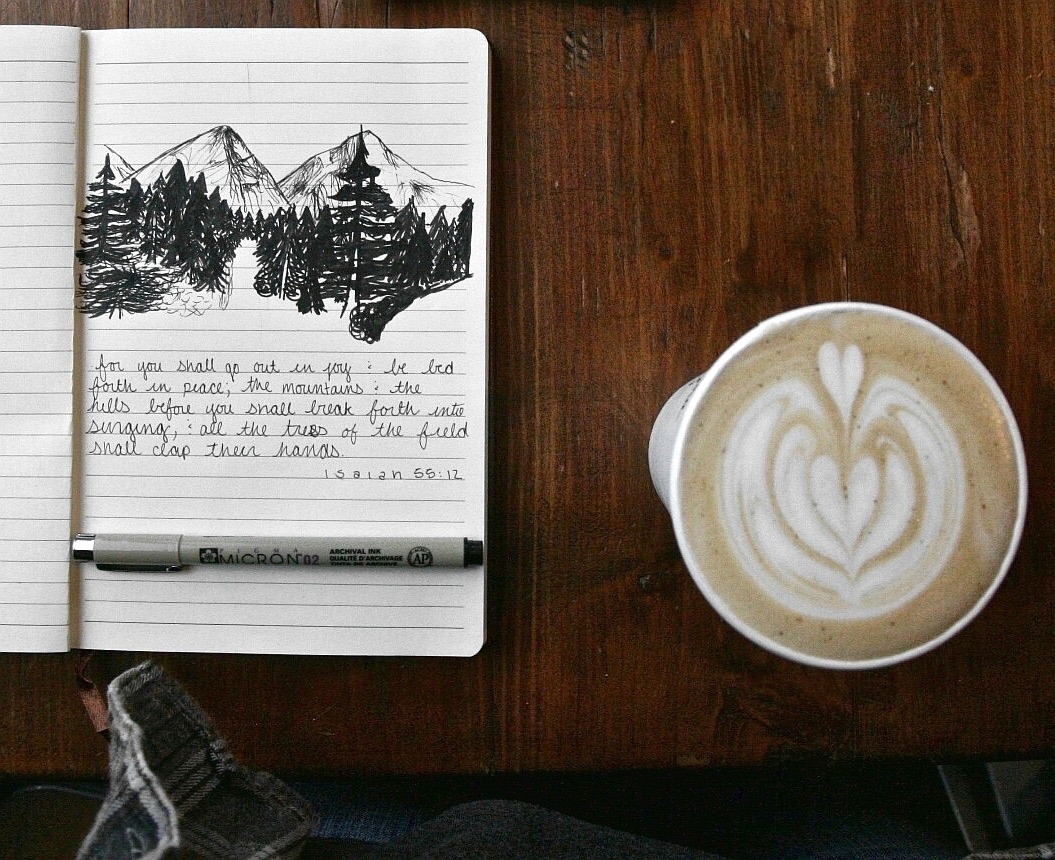 for you shall go out in joy & be led
forth in peace; the mountains & the
hills before you shall break forth into
singing, & all the trees of the field
shall clap their hands.
Isaiah 55:12
MICRON 02
ARCHIVAL INK
QUALITÉ D'ARCHIVAGE
AP